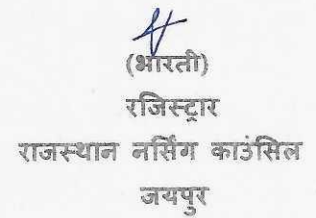 (भारती)
रजिस्ट्रार
राजस्थान नर्सिंग काउंसिल
जयपुर